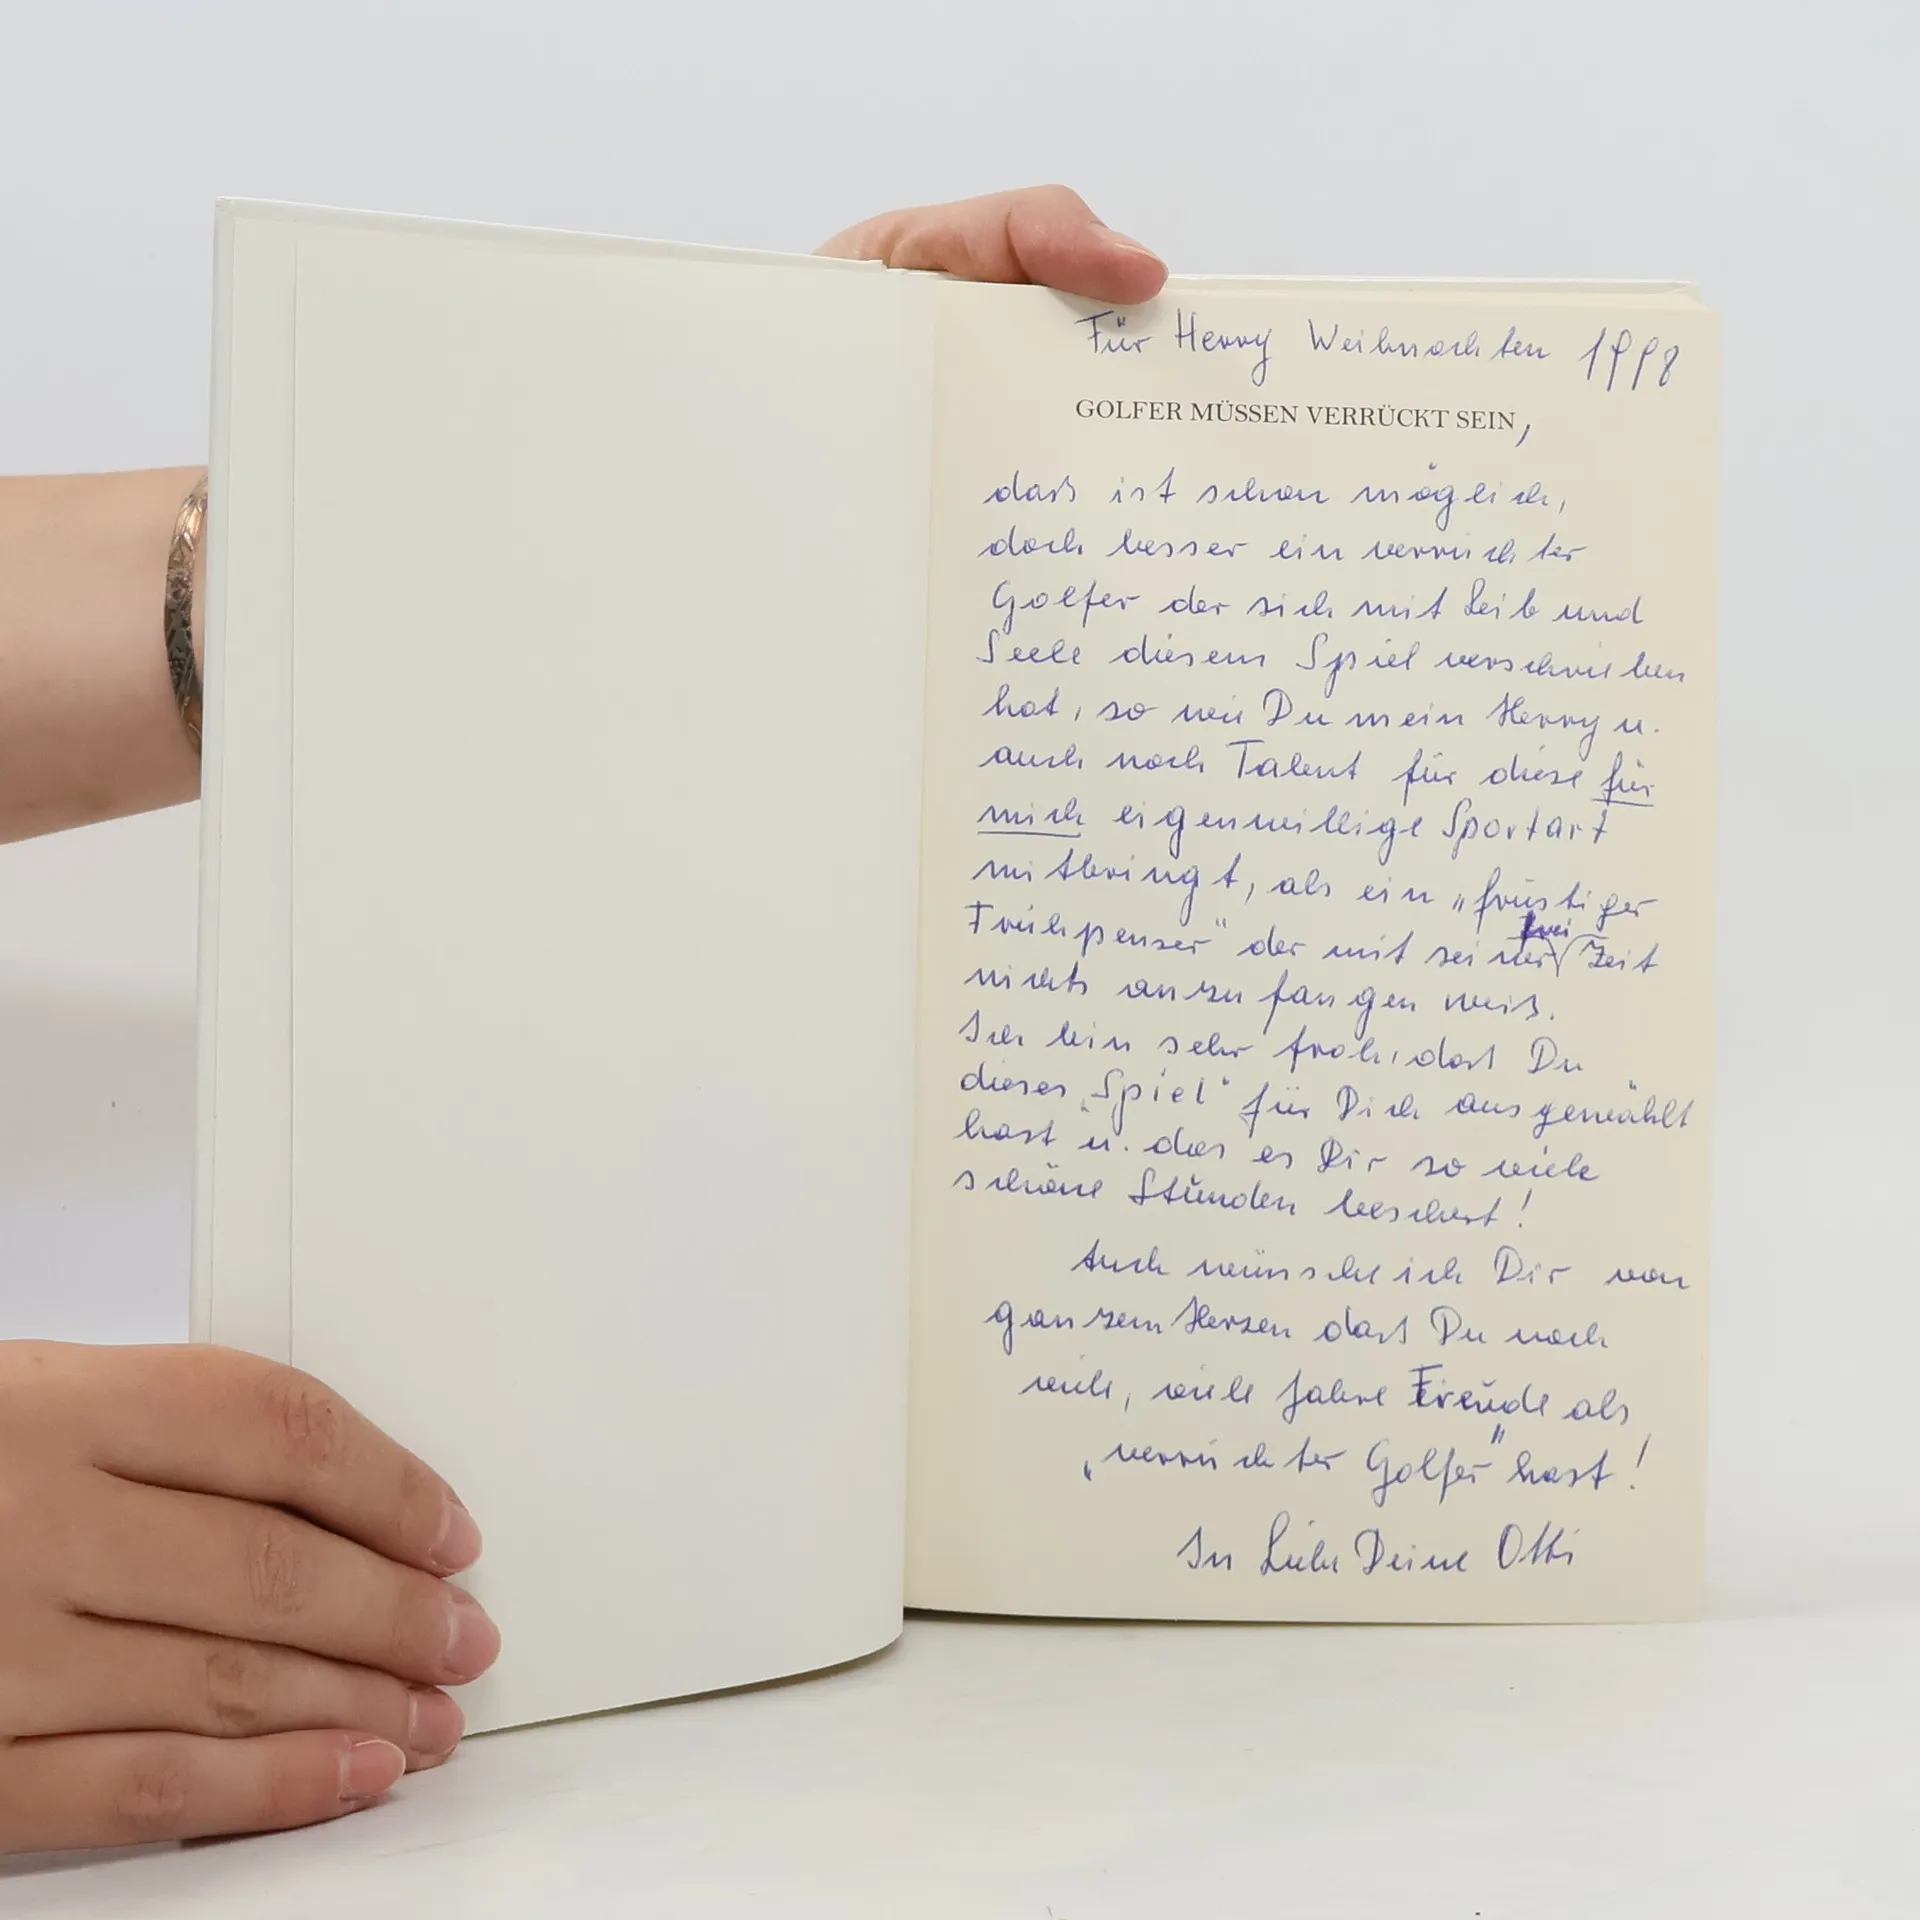 Für Herry Weihnachten 1998
GOLFER MÜSSEN VERRÜCKT SEIN,
daß ist schon möglich,
doch besser ein verrückter
Golfer der sich mit Leib und
Seele diesem Spiel verschrieben
hat, so wie Du mein Herry u.
auch noch Talent für diese für
mich eigenwillige Sportart
mitbringt, als ein „frustiger
Frühpenser" der mit seiner frei Zeit
nichts anzufangen weiß.
Ich bin sehr froh, dass Du
dieses „Spiel" für Dich ausgewählt
hast u. das es Dir so viele
schöne Stunden beschert!
Auch wünsche ich Dir von
ganzem Herzen dass Du noch
viele, viele Jahre Freude als
„verrückter Golfer" hast!
In Liebe Deine Otti